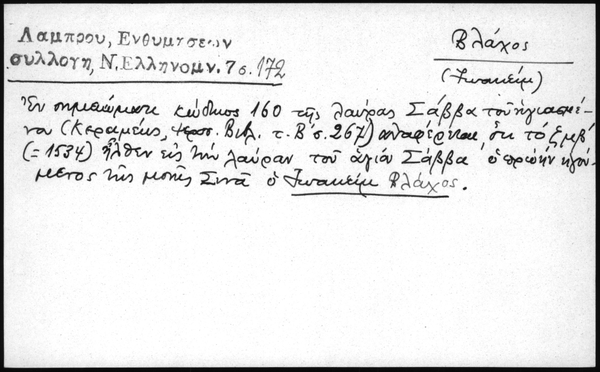 Λαμπρου, Ενθυμησεων
συλλογη, Ν. Ελληνομν. 7 σ. 172
Βλάχος
(Ἰωακείμ)
Ἐν σημειώματι κώδικος 160 τῆς Λαύρας Σάββα τοῦ ἡγιασμέ-
νου (Κεραμέως, Ἱεροσ. Βιβλ. τ. Β΄ σ. 267) ἀναφέρεται, ὅτι τὸ ζμβ΄
(= 1534) ἦλθεν εἰς τὴν λαύραν τοῦ ἁγίου Σάββα ὁ πρώην ἡγού-
μενος τῆς μονῆς Σινᾶ ὁ Ἰωακεὶμ Βλάχος.